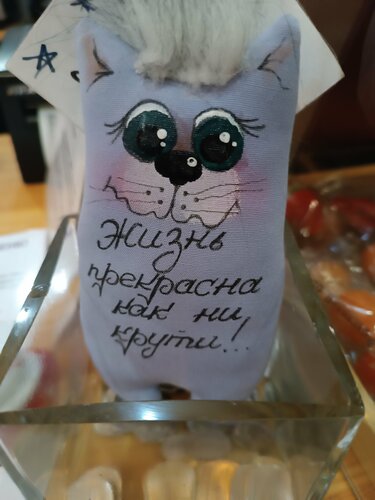 Жизнь
прекрасна
как ни
крути...!